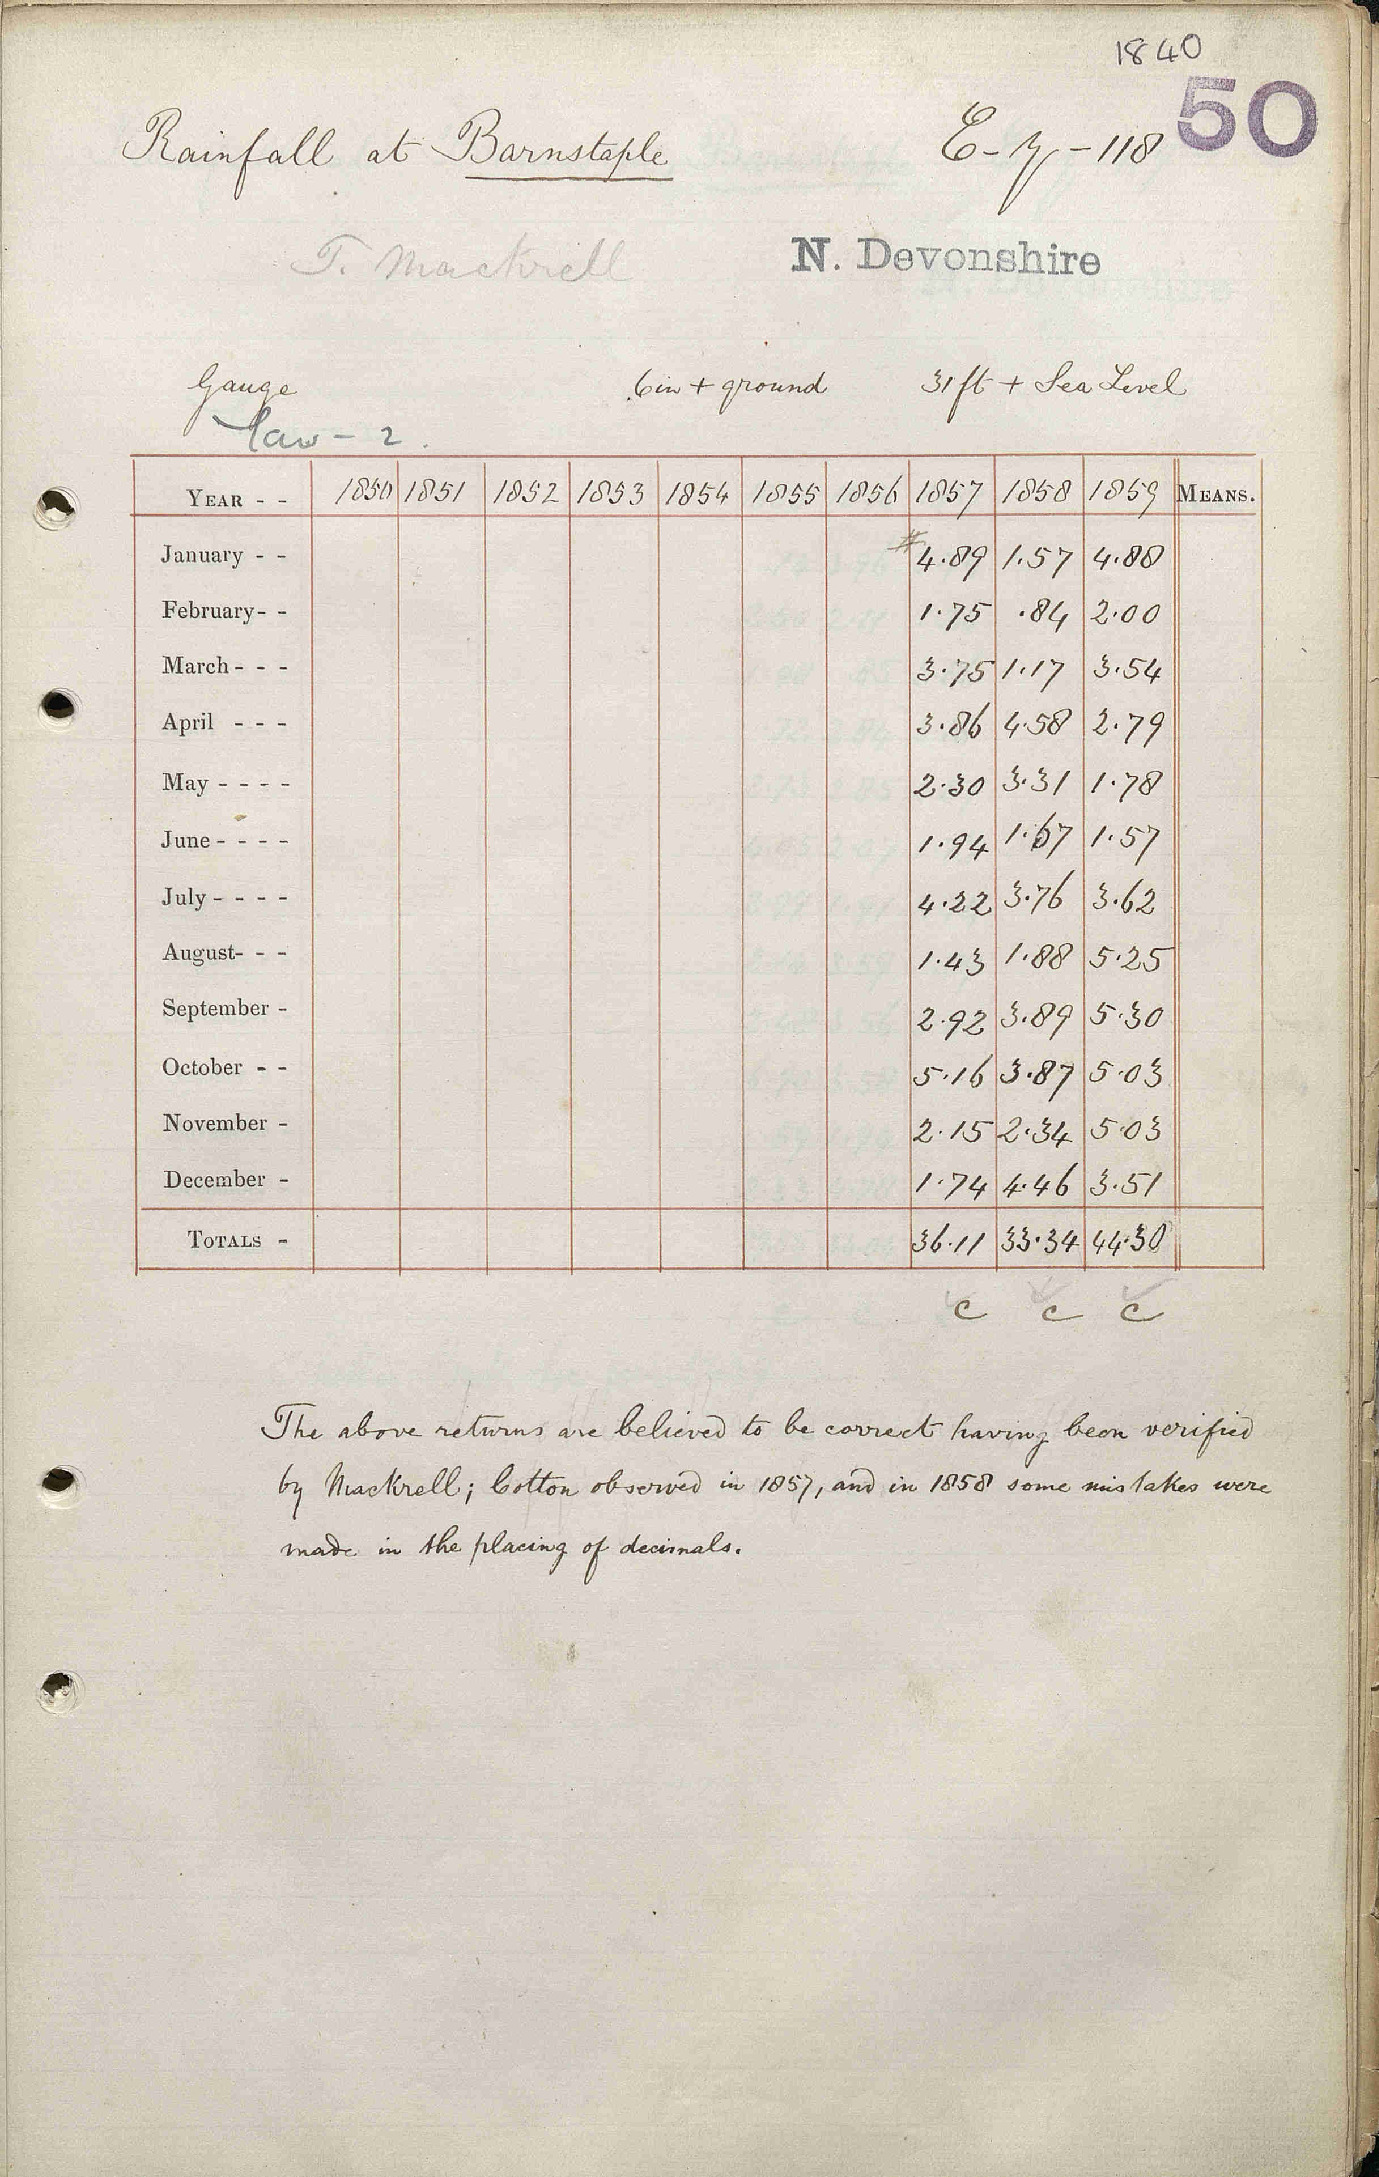 1840
50
Rainfall at Barnstaple E - - 118
T. Mackrell N. Devonshire
Gauge 6in + ground 31ft + Sea Level
Taw - 2.
YEAR - - 1850 1851 1852 1853 1854 1855 1856 1857 1858 1859 MEANS.
January - - # 4.89 1.57 4.88
February - - 1.75 .84 2.00
March - - - 3.75 1.17 3.54
April - - - 3.86 4.58 2.79
May - - - - 2.30 3.31 1.78
June - - - - 1.94 1.67 1.57
July - - - - 4.22 3.76 3.62
August - - - 1.43 1.88 5.25
September - 2.92 3.89 5.30
October - - 5.16 3.87 5.03
November - 2.15 2.34 5.03
December - 1.74 4.46 3.51
TOTALS - 36.11 33.34 44.30
c c c
The above returns are believed to be correct having been verified
by Mackrell; Cotton observed in 1857, and in 1858 some mistakes were
made in the placing of decimals.